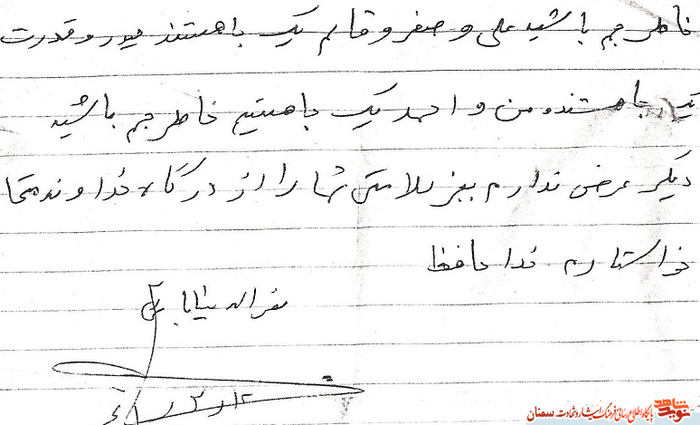 خاطر جم باشید علی و صفر و قاسم یک جا هستند حیدر و قدرت
یک جا هستند و من و احمد یک جا هستیم خاطر جم باشید
دیگر عرض ندارم بغیر سلامتی شما را از درگاه خداوند متعا
خواستارم خدا حافظ
نویدشاهد
پایگاه اطلاع رسانی فرهنگ ایثار و شهادت سمنان